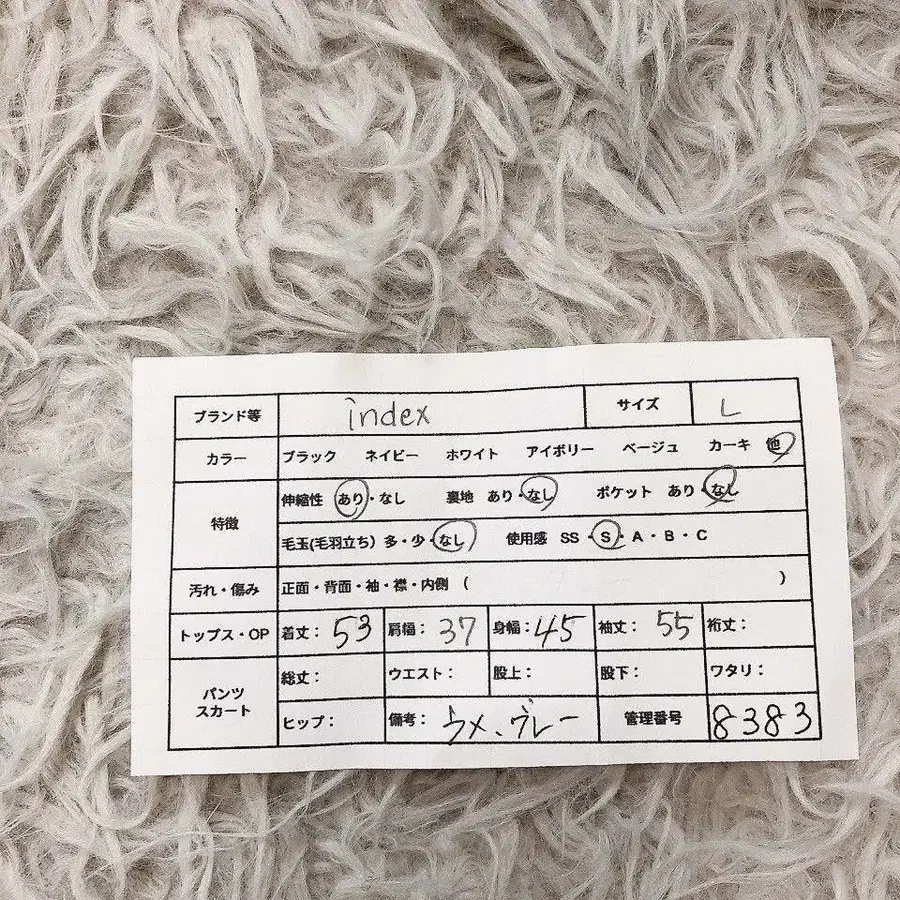 ブランド等 index サイズ L
カラー ブラック ネイビー ホワイト アイボリー ベージュ カーキ 他
特徴 伸縮性 あり・なし 裏地 あり・なし ポケット あり・なし
毛玉(毛羽立ち) 多・少・なし 使用感 SS・S・A・B・C
汚れ・傷み 正面・背面・袖・襟・内側 ( )
トップス・OP 着丈: 53 肩幅: 37 身幅: 45 袖丈: 55 裄丈:
パンツ スカート 総丈: ウエスト: 股上: 股下: ワタリ:
ヒップ: 備考: グレー 管理番号 8383